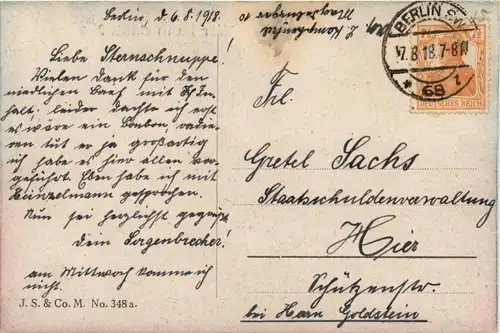 Berlin, d. 6.8.1918.
Liebe Sternschnuppe!
Vielen Dank für den
niedlichen Brief mit Inhalt.
leider dachte ich erst
es wäre ein Bonbon, radieren
tut er ja großartig
ich habe es hier allen vorgeführt.
Eben habe ich mit
Heinzelmann gesprochen.
Nun sei herzlichst gegrüßt
Dein Sorgenbrecher!
am Mittwoch komme ich
nicht.
J. S. & Co. M. No. 348a.
Magdeburger 10
BERLIN SW
7.8.18.7-8N
* 68
DEUTSCHES REICH
Frl.
Gretel Sachs
Staatsschuldenverwaltung
Hier
Schützenstr.
bei Herrn Goldstein